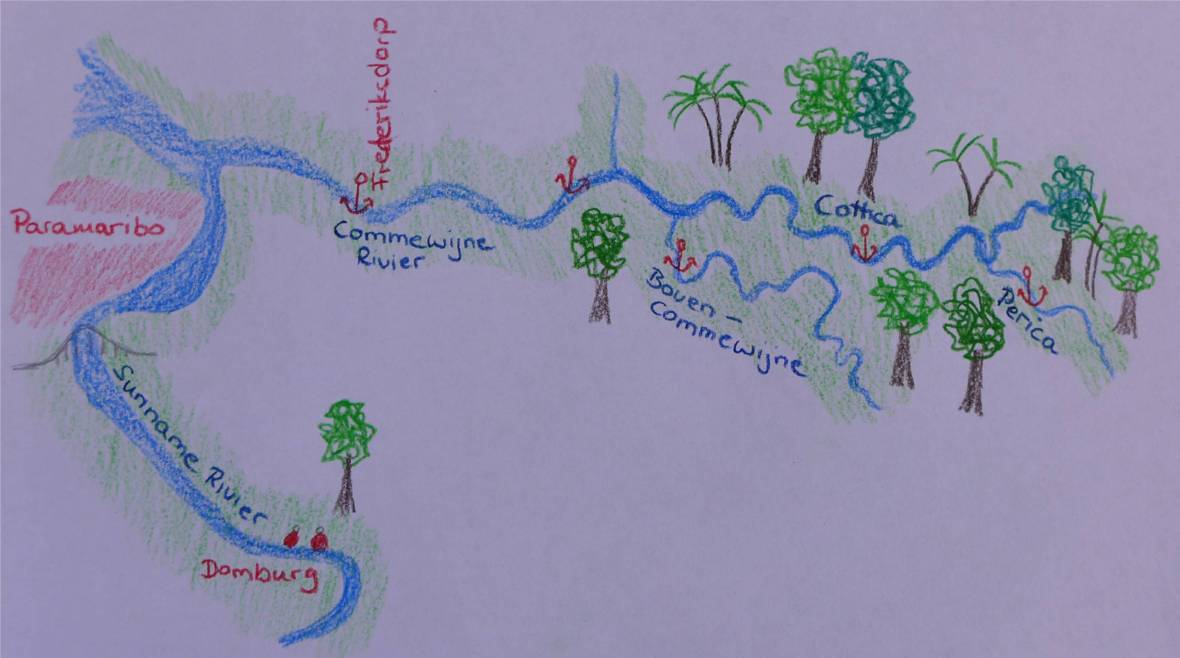 Frederiksdorp
Paramaribo
Commewijne
Rivier
Cottica
Boven-
Commewijne
Perica
Suriname Rivier
Domburg